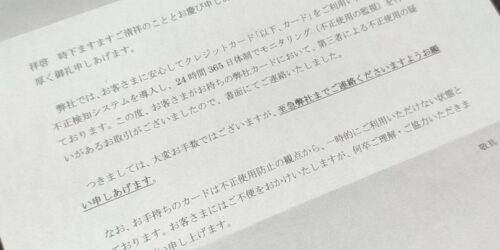 拝啓 時下ますますご清祥のこととお慶び申し
厚く御礼申しあげます。
弊社では、お客さまに安心してクレジットカード「以下、カード」をご利用い
不正検知システムを導入し、24時間365日体制でモニタリング（不正使用の監視）を行
ております。この度、お客さまがお持ちの弊社カードにおいて、第三者による不正使用の疑
いがあるお取引がございましたので、書面にてご連絡いたしました。
つきましては、大変お手数ではございますが、至急弊社までご連絡くださいますようお願
い申しあげます。
なお、お手持ちのカードは不正使用防止の観点から、一時的にご利用いただけない状態と
ております。お客さまにはご不便をおかけいたしますが、何卒ご理解・ご協力いただきま
い申し上げます。
敬具